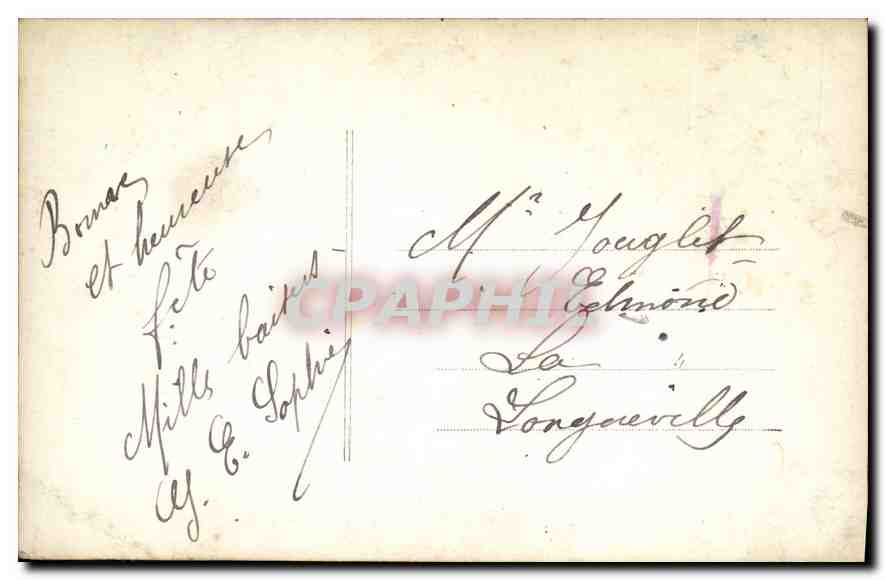 Bonne
et heureuse
fête
Mille baisers
E. Sophie
Mr Jouglet
Edmond
La
Longueville
CPAPHIL